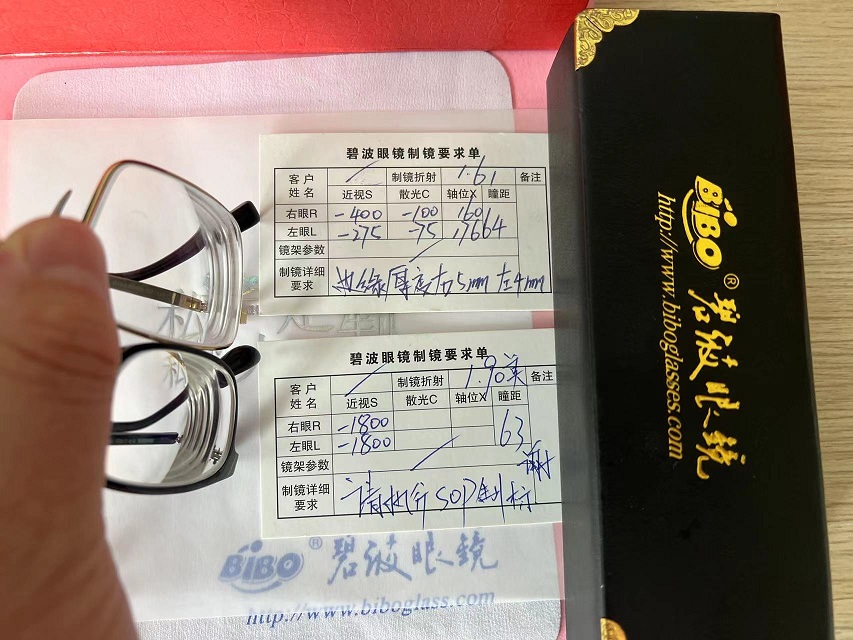 碧波眼镜制镜要求单
客户姓名 制镜折射 1.61 备注
近视S 散光C 轴位X 瞳距
右眼R -400 -100 160
左眼L -275 -75 176 64
镜架参数
制镜详细要求 边缘厚度右5mm 左4mm
碧波眼镜制镜要求单
客户姓名 制镜折射 1.90 备注
近视S 散光C 轴位X 瞳距
右眼R -1800 63
左眼L -1800
镜架参数
制镜详细要求 请执行SOP制作
谢谢
BiBO® 碧波眼镜
http://www.biboglass.com
BiBO® 碧波眼镜
http://www.biboglasses.com